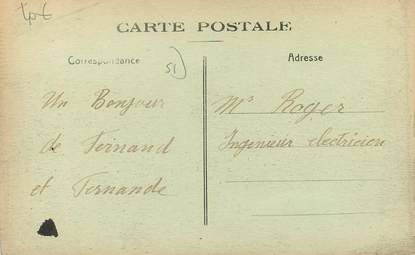 CARTE POSTALE
Correspondance
51
Adresse
Un Bonjour
de Fernand
et Fernande
Mr Roger
Ingenieur electricien